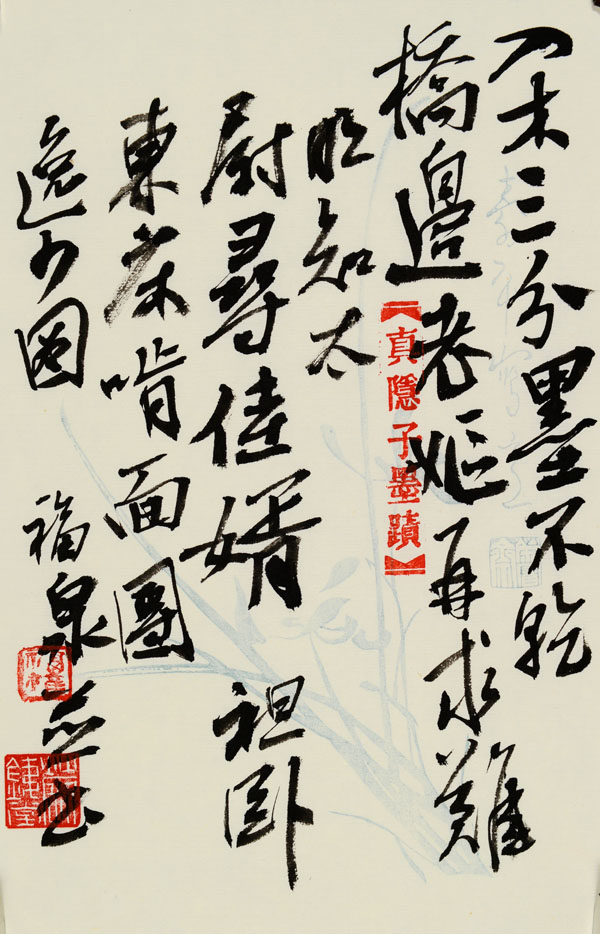 入木三分墨不乾
橋邊老嫗再求難
【真隱子墨蹟】
明知太
尉尋佳婿袒卧
東床啃面團
逸少圖
福泉並书